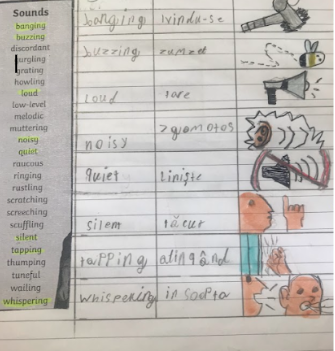 Sounds
banging
buzzing
discordant
gurgling
grating
howling
loud
low-level
melodic
muttering
noisy
quiet
raucous
ringing
rustling
scratching
screeching
scuffling
silent
tapping
thumping
tuneful
wailing
whispering
banging
buzzing zumzet
loud tare
noisy zgomotos
quiet Liniște
silem tăcut
tapping
whispering in șoapta